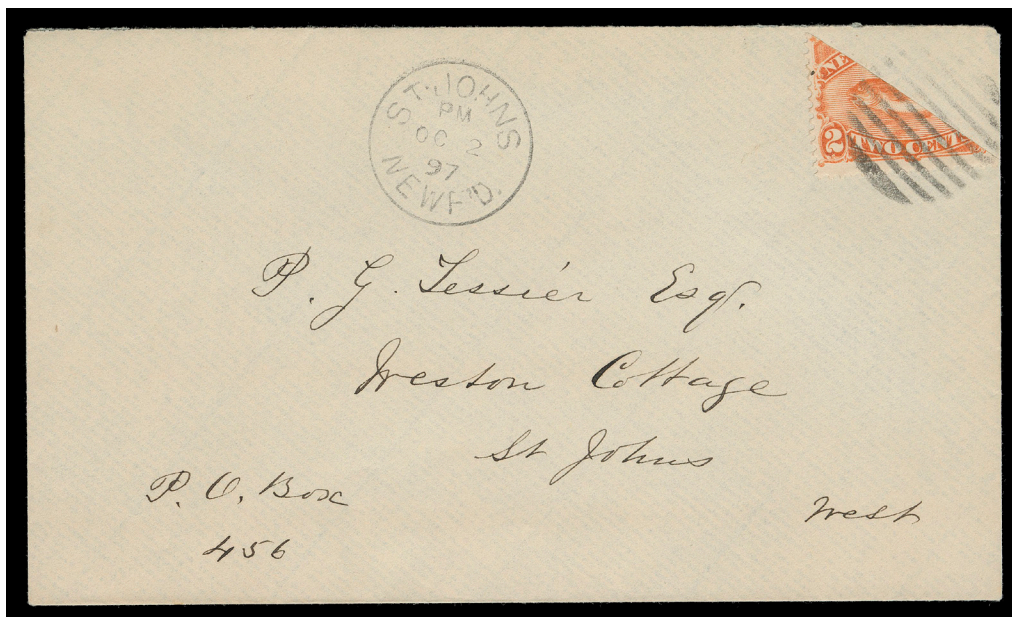 ST. JOHNS
PM
OC 2
97
NEWF'D.
NE
2 TWO CENT
P. G. Tessier Esqr.
Weston Cottage
St Johns
West
P. O. Box
456